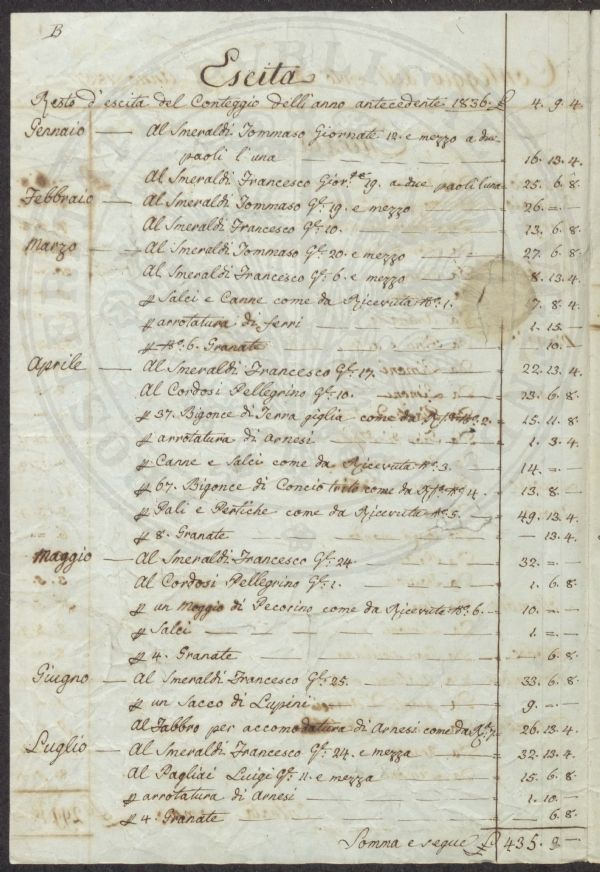 B
Escita
Resto d'escita del Conteggio dell'anno antecedente 1836. £ 4. 9. 4.
Gennaio — Al Smeraldi Tommaso Giornate 12. e mezzo a due
paoli l'una — 16. 13. 4.
Al Smeraldi Francesco Gior.te 19. a due paoli l'una 25. 6. 8.
Febbraio — Al Smeraldi Tommaso G.e 19. e mezzo — 26. =. —
Al Smeraldi Francesco G.e 10. — 13. 6. 8.
Marzo — Al Smeraldi Tommaso G.e 20. e mezzo — 27. 6. 8.
Al Smeraldi Francesco G.e 6. e mezzo — 8. 13. 4.
p Salci e Canne come da Ricevuta N.o 1. 7. 8. 4.
p arrotatura di ferri — 1. 15. —
p N.o 6. Granate — 10. —
Aprile — Al Smeraldi Francesco G.e 17. — 22. 13. 4.
Al Cordosi Pellegrino G.e 10. — 13. 6. 8.
p 37. Bigonce di Terra giglia come da R.ta N.o 2. 15. 11. 8.
p arrotatura di Arnesi — 1. 3. 4.
p Canne e Salci come da Ricevuta N.o 3. — 14. =. —
p 67. Bigonce di Concio trito come da R.ta N.o 4. — 13. 8. —
p Pali e Pertiche come da Ricevuta N.o 5. — 49. 13. 4.
p 8. Granate — 13. 4.
Maggio — Al Smeraldi Francesco G.e 24. — 32. =. —
Al Cordosi Pellegrino G.e 1. — 1. 6. 8.
p un Moggio di Pecorino come da Ricevuta N.o 6. — 10. =. —
p Salci — 1. =. —
p 4. Granate — 6. 8.
Giugno — Al Smeraldi Francesco G.e 25. — 33. 6. 8.
p un Sacco di Lupini — 9. =. —
Al Fabbro per accomodatura di Arnesi come da R.ta 7. 26. 13. 4.
Luglio — Al Smeraldi Francesco G.e 24. e mezza — 32. 13. 4.
Al Pagliai Luigi G.e 11. e mezza — 15. 6. 8.
p arrotatura di Arnesi — 1. 10. —
p 4. Granate — 6. 8.
Somma e segue £ 435. 9. —